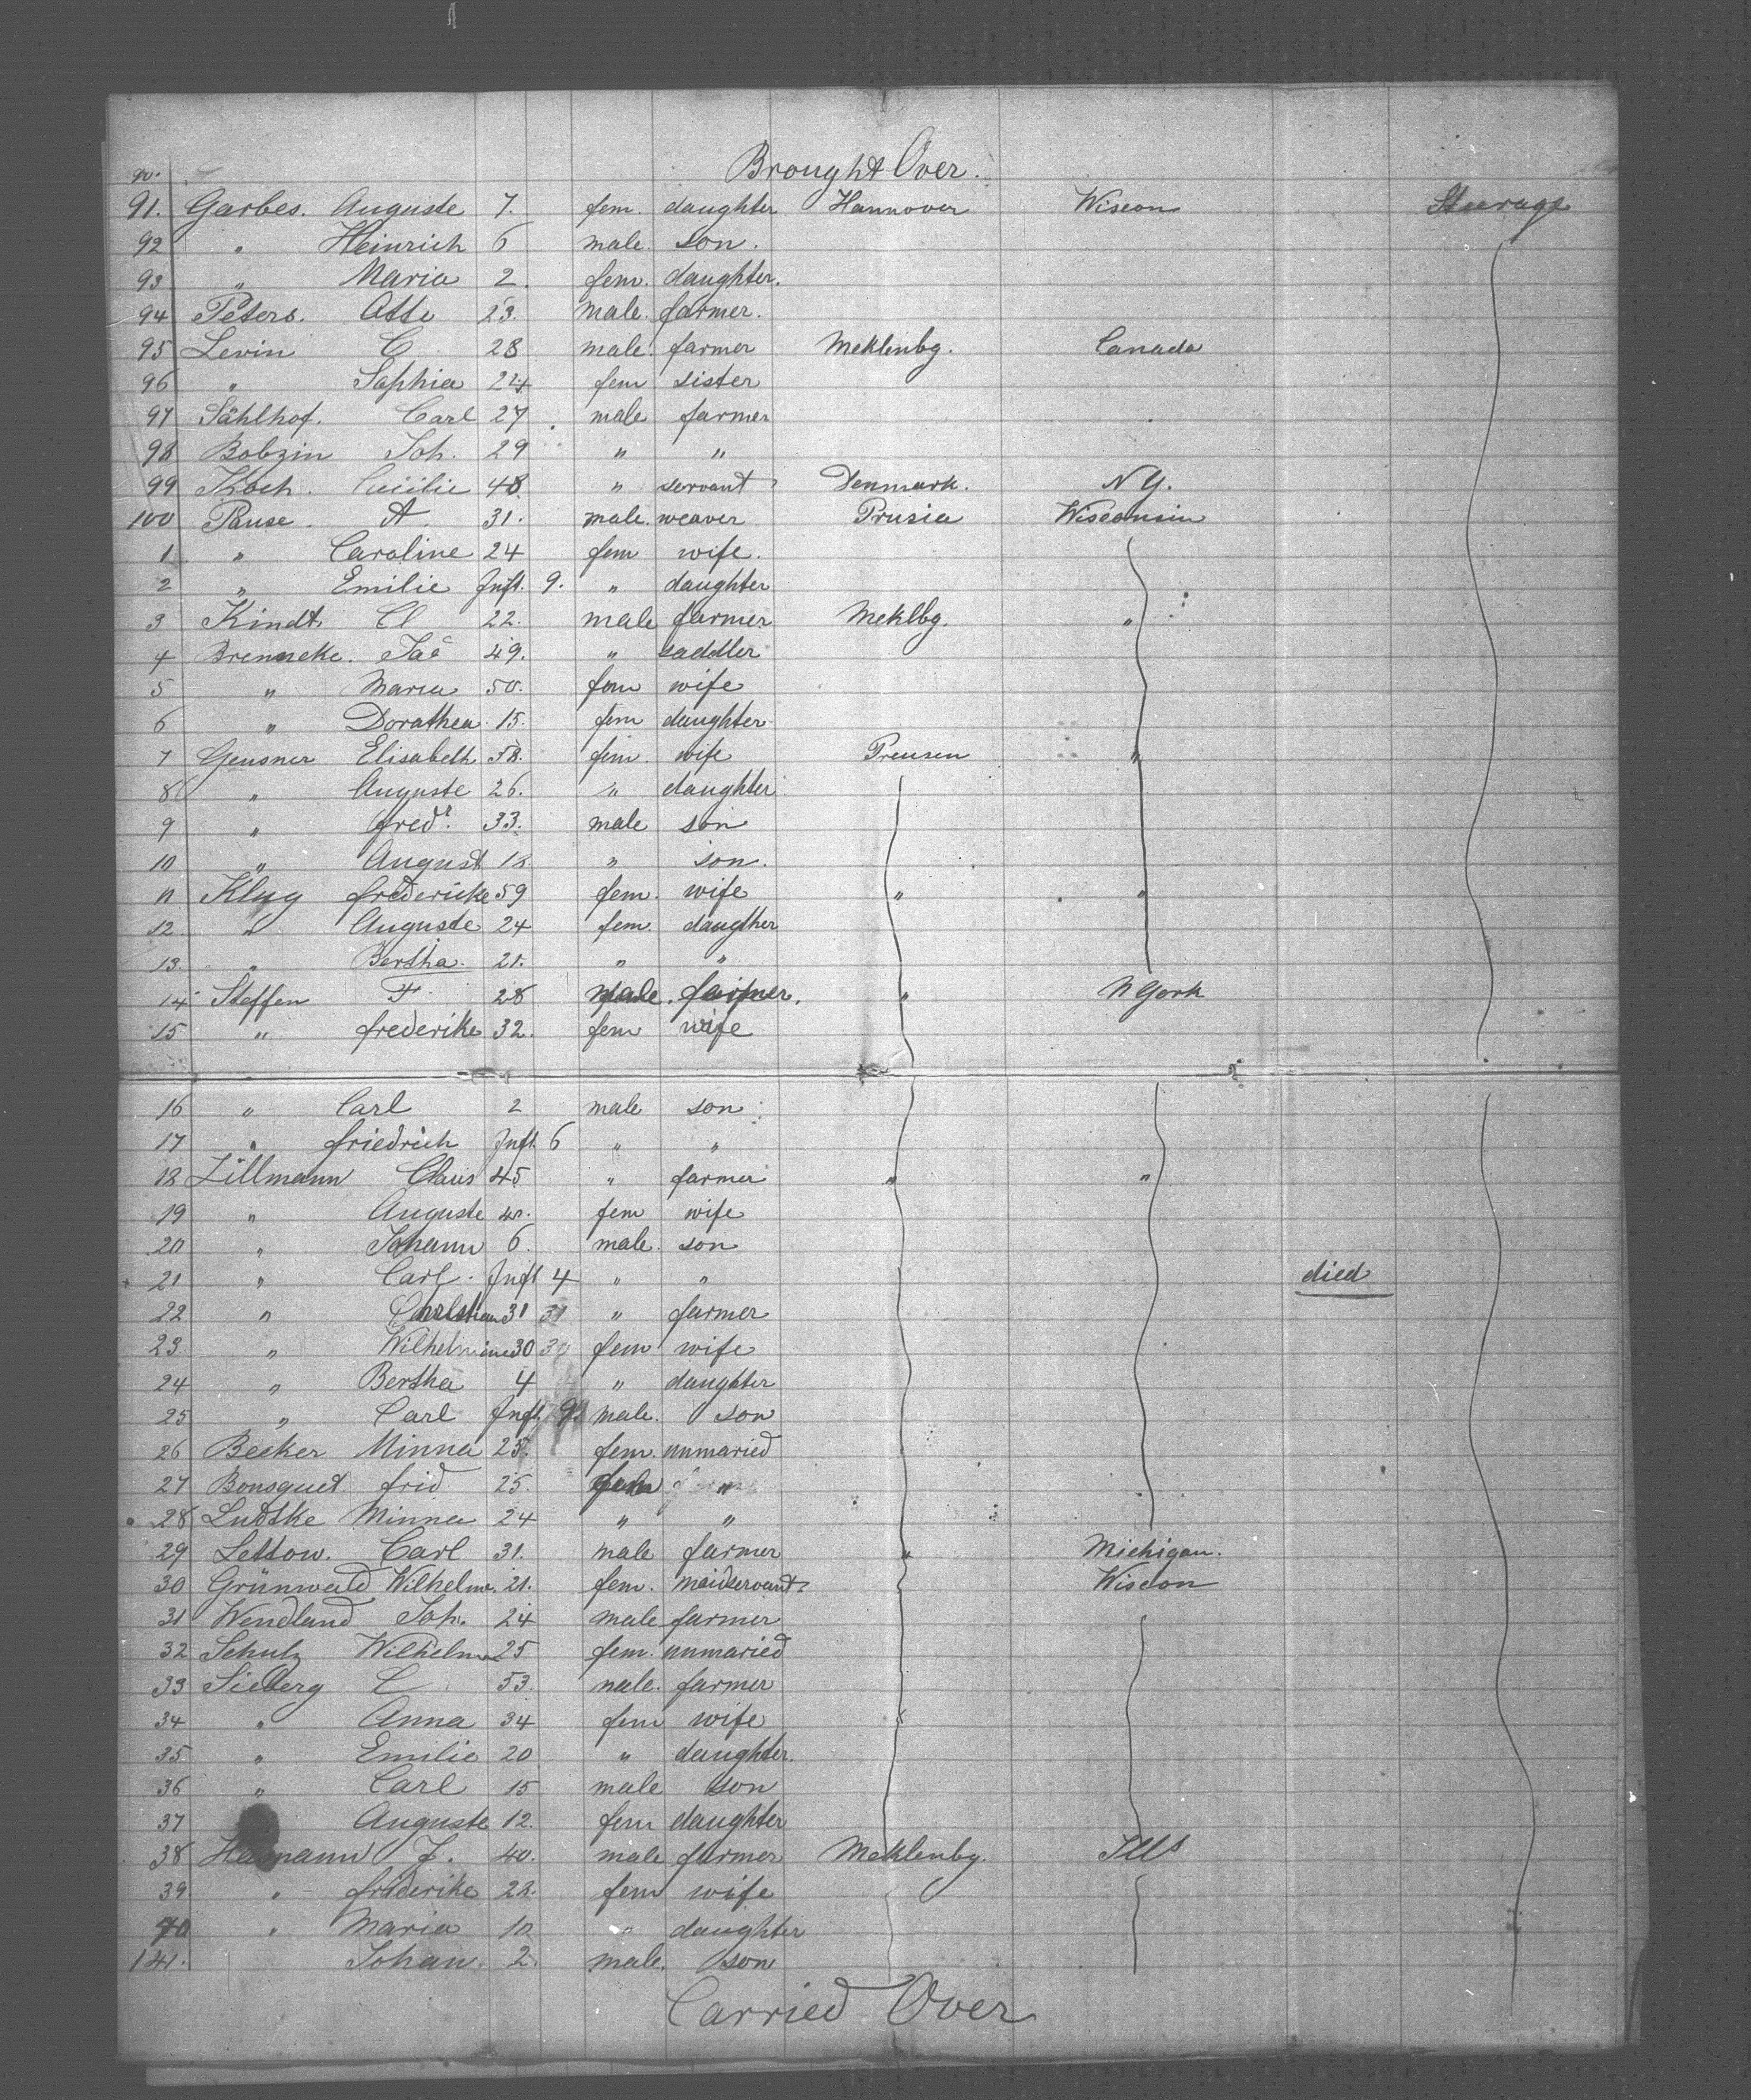 Brought Over.
No.
91. Garbes. Auguste 7. fem. daughter Hannover Wiscon Steerage
92 " Heinrich 6 male. son.
93 " Maria 2. fem. daughter.
94 Peters. Otto 23. male. farmer.
95 Levin C 28 male. farmer Meklenbg. Canada
96 " Sophia 24 fem sister
97 Sählhof. Carl 27 male farmer
98 Bobzin Joh. 29 " "
99 Koch. Cecilie 48 " servant Denmark. NY.
100 Pause. A. 31. male. weaver Prusia Wisconsin
1 " Caroline 24 fem wife.
2 " Emilie Inft. 9. " daughter
3 Kindt. Cl 22. male farmer Meklbg. "
4 Brenneke. 49. " saddler
5 " Maria 50. fem wife
6 " Dorathea 15. fem daughter
7 Geusner Elisabeth 58. fem. wife Preusen "
8 " Auguste 26. " daughter
9 " fredr. 33. male son
10 " August 18. " son.
11 Klug frederike 59 fem. wife " "
12 " Auguste 24 fem. daugther
13. " Bertha. 21. " "
14 Steffen F. 28 male. farmer. " N York
15 " frederike 32. fem wife
16 " Carl 2 male son
17 " friedrich Inft. 6 " "
18 Zillmann Claus 45 " farmer " "
19 " Auguste fem wife
20 " Johann 6. male. son
21 " Carl. Inft 4 " " died
22 " Christian 31 31 " farmer
23. " Wilhelmine 30 30 fem wife
24 " Bertha 4 " daughter
25 " Carl Inft. 9. male. son
26 Becker Minna 25. fem. unmaried
27 Bousquet frid 25. fem "
28 Ludtke Minna 24 " "
29 Lettow. Carl 31. male farmer " Michigan.
30 Grünwald Wilhelme. 21. fem. maidservant. Wiscon
31 Wendland Joh. 24 male farmer
32 Schulz Wilhelme 25 fem. unmaried
33 Sieberg C 53. male. farmer
34 " Anna 34 fem wife
35 " Emilie 20 " daughter
36 " Carl 15 male son
37 Auguste 12. fem daughter
38 J. 40. male farmer Meklenbg. Ills
39 " frederike 22. fem wife
40 " Maria 10 " daughter
141. Johan 2. male. son
Carried Over